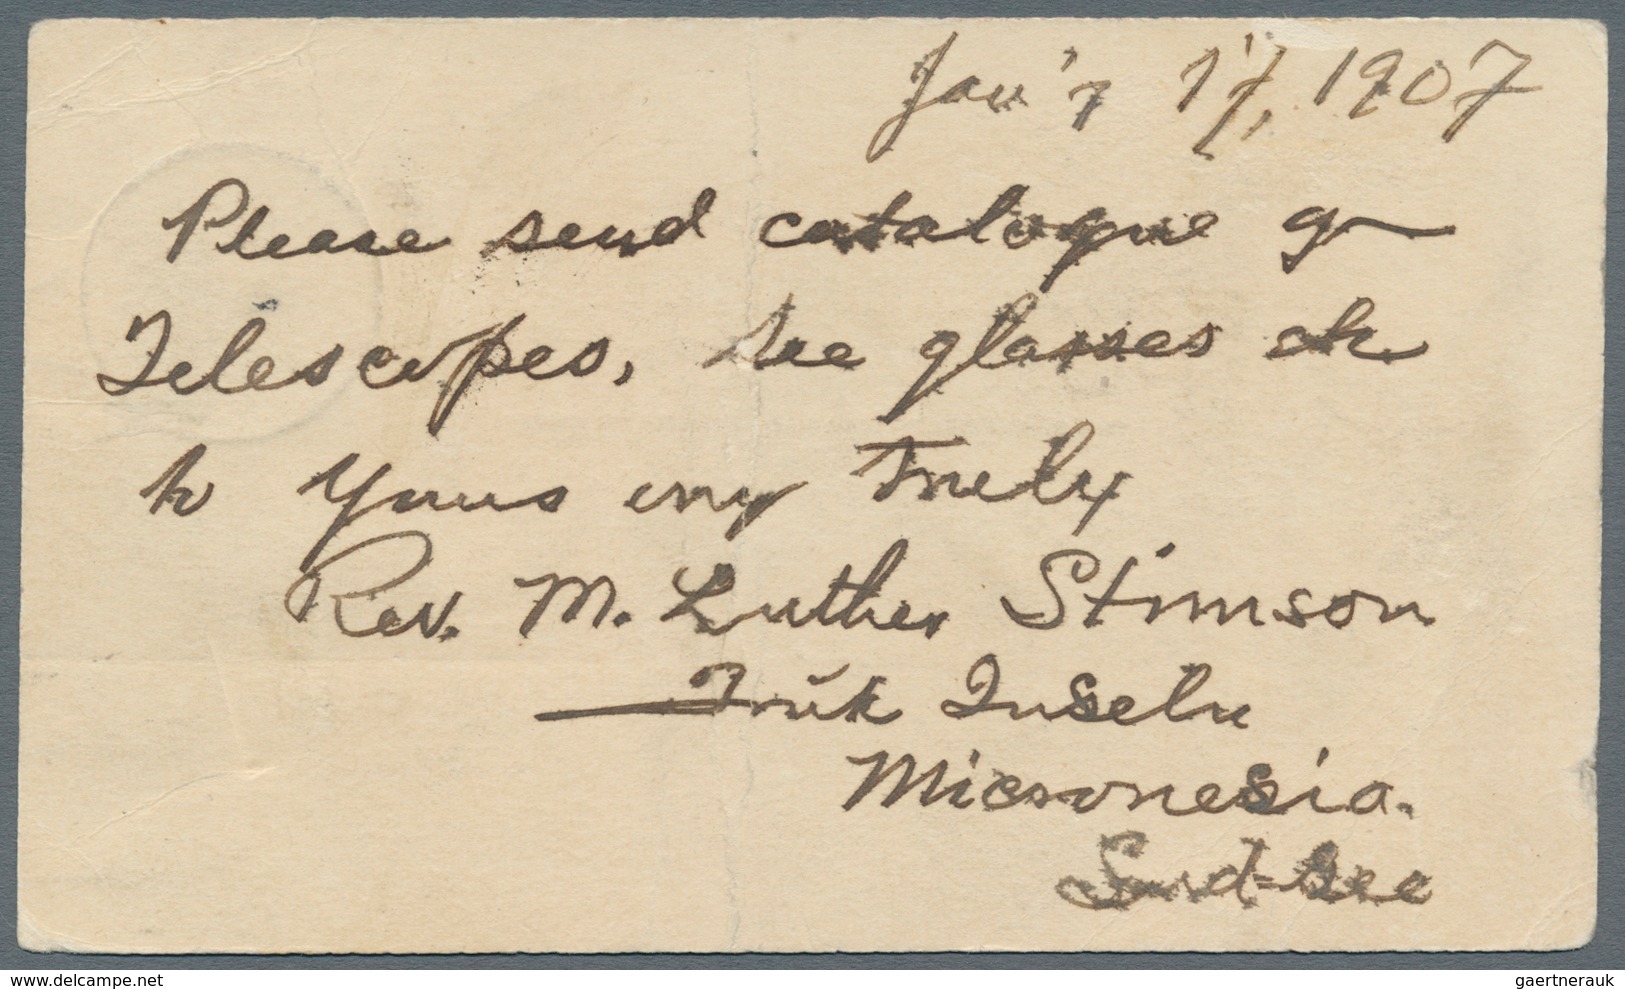 Jan'y 17, 1907
Please send catalogue of
Telescopes, see glasses etc
to Yours very Truly
Rev. M. Luther Stimson
Truk Inseln
Micronesia.
Sud-See
delcampe.net
gaertnerauk